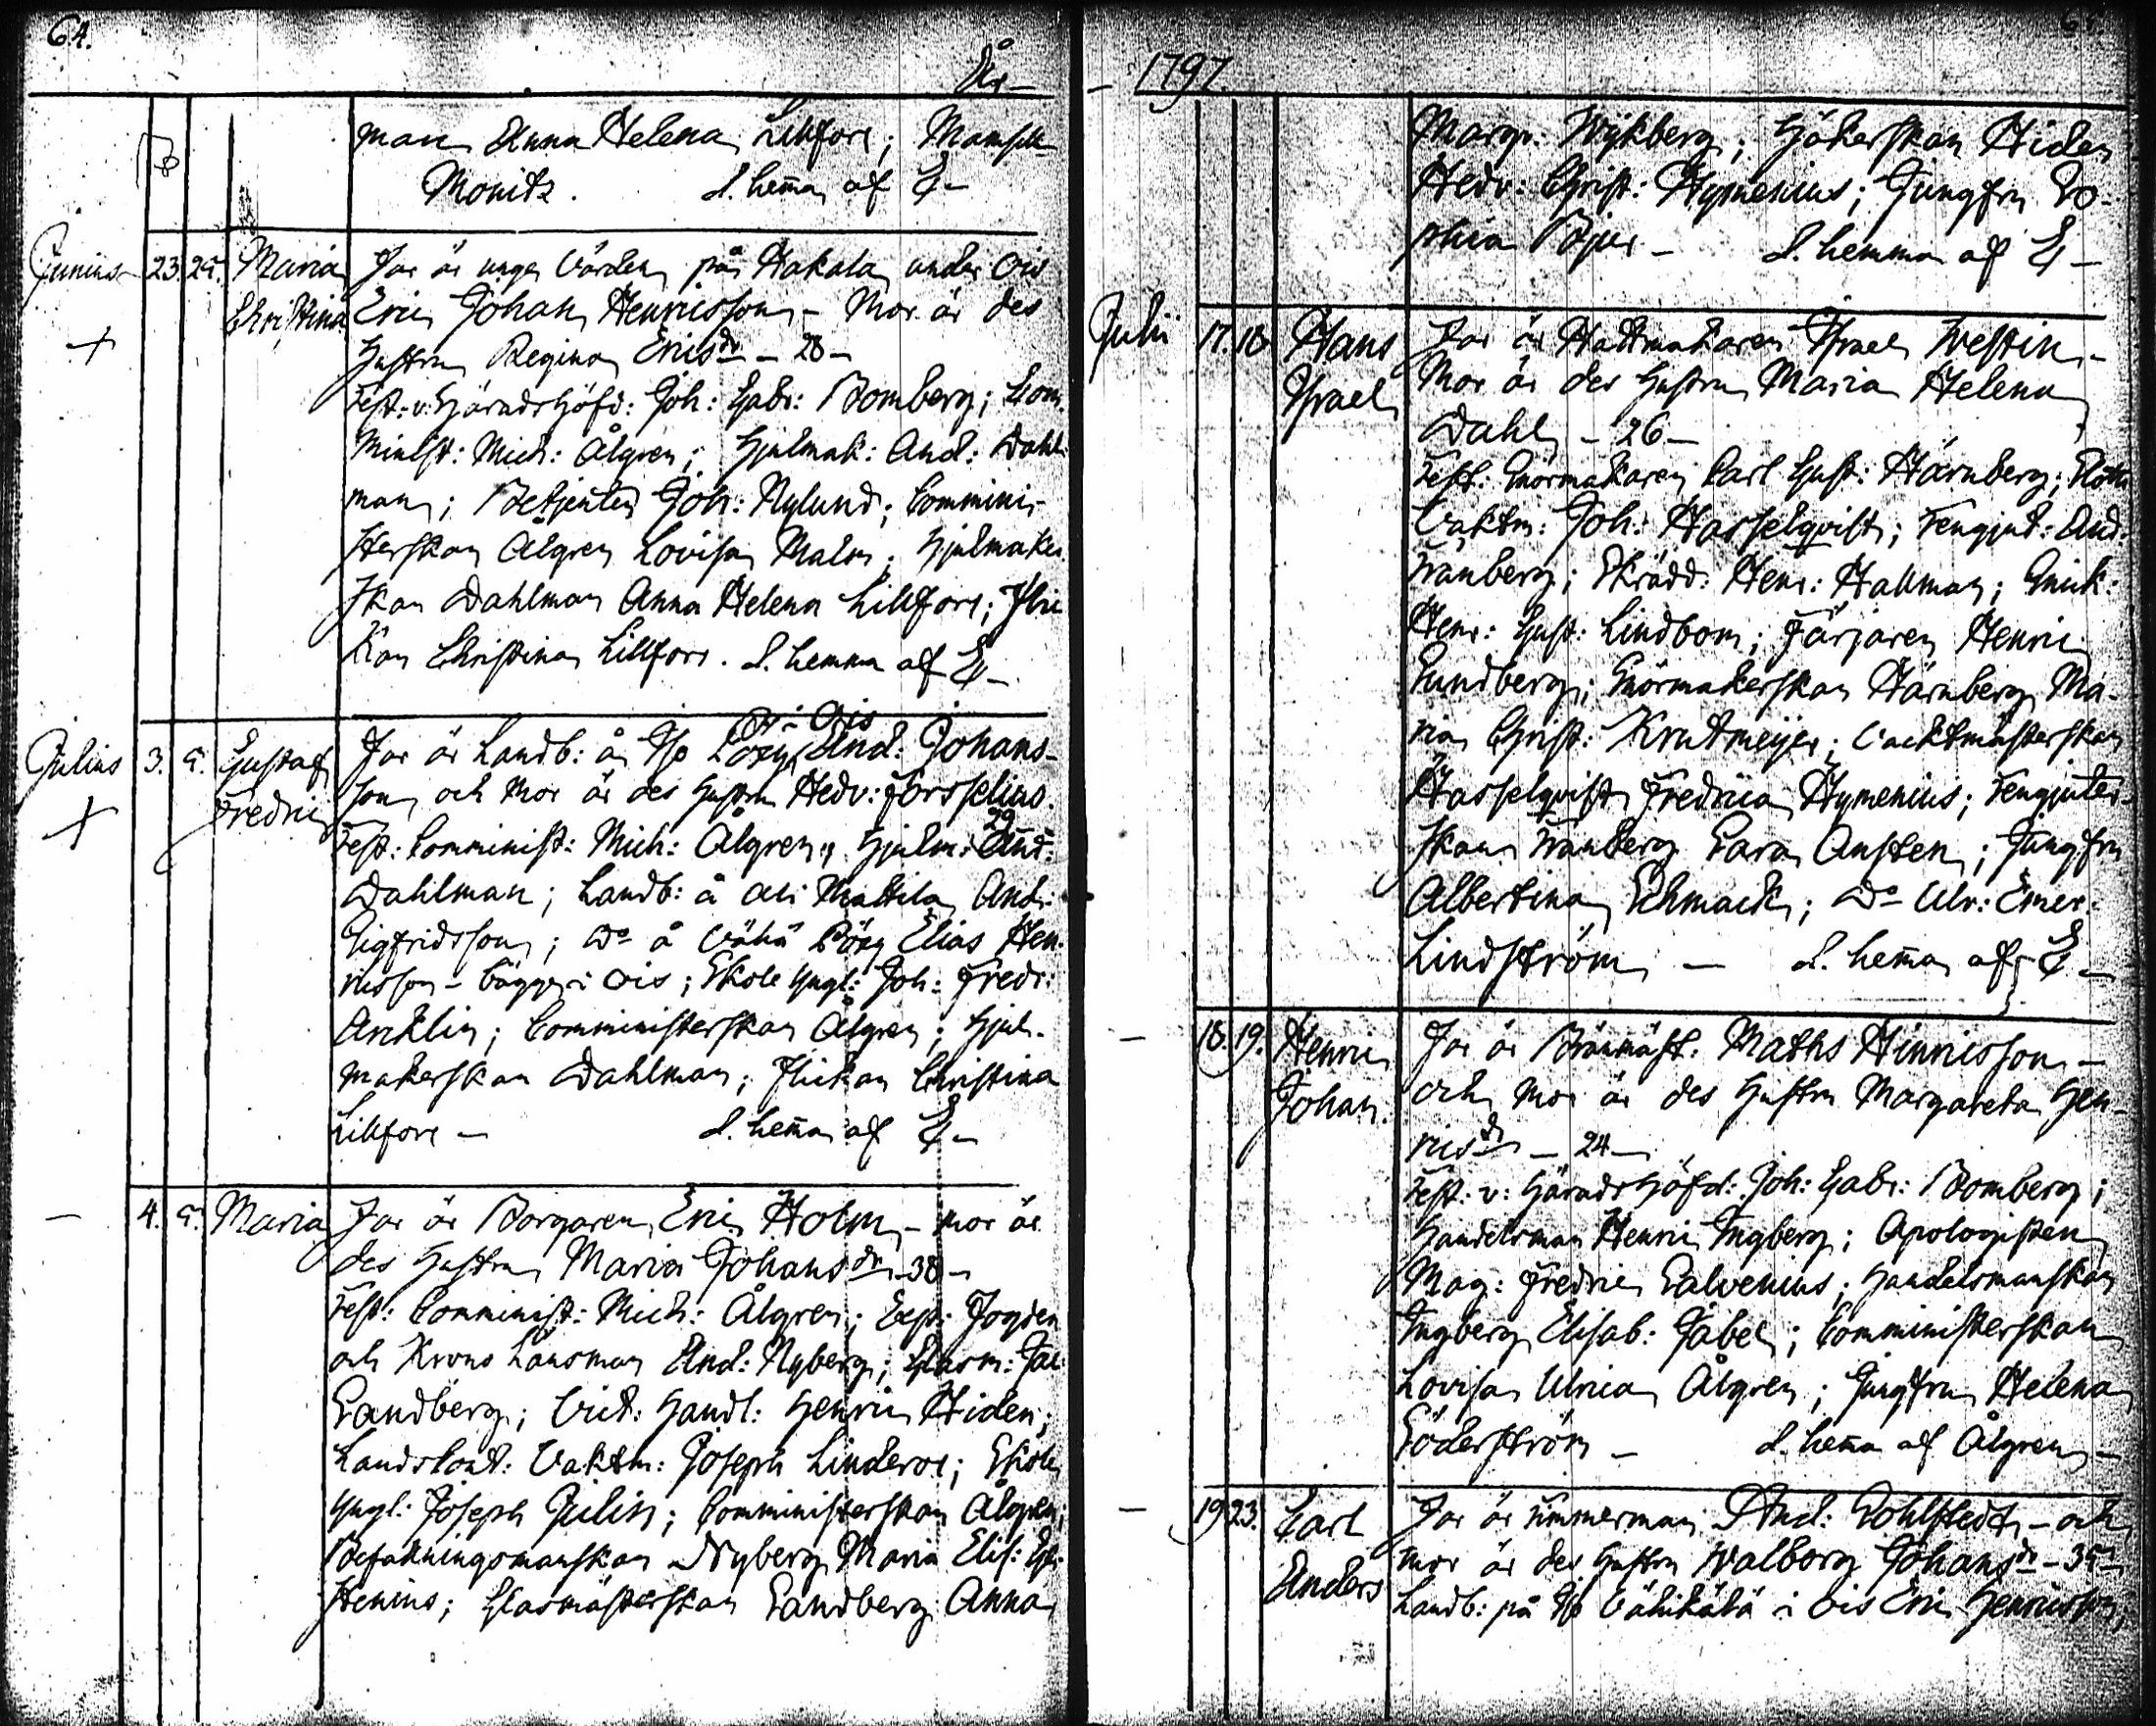 64.
År –
man Anna Helena Lillfors; Mamsell
Monitz. d. hem̄a af E –
Junius 23. 25. Maria Far är unge Värden på Hakala under Ois
Christina Eric Johan Henricsson – Mor är des
+
Hustru Regina Ericsdr – 28 –
Test: v: Häradshöfd: Joh: Gabr: Bomberg; Com-
minist: Mich: Ålgren; Hjulmak: And: Dahl-
man; Betjenten Joh: Nylund; Commini-
sterskan Ålgren Lovisa Malm; Hjulmaker-
skan Dahlman Anna Helena Lillfors; Flic-
kan Christina Lillfors. d. hemma af E –
i Ois
Julius 3. 5. Gustaf Far är Landb: å Iso Pöry And: Johans-
Fredric son och Mor är des Hustru Hedv: Forsselius.
+ 29
Test: Comminist: Mich: Ålgren; Hjulm: And:
Dahlman; Landb: å Ali Mattila And:
Sigfridsson; Do å Vähä Pöry Elias Hen-
ricsson – bägge i Ois; Skole Yngl: Joh: Fredr:
Anklin; Comministerskan Ålgren; Hjul-
makerskan Dahlman; Flickan Christina
Lillfors – d. hem̄a af E –
– 4. 5. Maria Far är Borgaren Eric Holm – mor är
des Hustru Maria Johansdr – 38 –
Test: Comminist: Mich: Ålgren; Exp: Fogden
och Krono Länsman And: Nyberg; Glasm: Jac:
Sandberg; Vict: Handl: Henric Hiden;
Landscont: Vaktm: Joseph Linderos; Skole
Yngl: Joseph Julin; Comministerskan Ålgren;
Befallningsmanskan Nyberg Maria Elis:
stenius; Glasmästerskan Sandberg Anna
– 1797.
Margr: Wijkberg; Hökerskan Hiden
Hedv: Christ: Hymenius; Jungfru So-
phia Bjur – d. hemma af E –
Julii 17. 18. Hans Far är Hattmakaren Israel Westin –
Israel Mor är des Hustru Maria Helena
Dahl – 26 –
Test: Snörmakaren Carl Gust: Härnberg; Slotts
Vaktm: Joh: Hasselqvist; Tengjut: And:
Tranberg; Skrädd: Henr: Hallman; Snick:
Henr: Gust: Lindbom; Färjaren Henric
Sundberg; Snörmakerskan Härnberg Ma-
ria Christ: Krutmeijer; Vacktmästerskan
Hasselqvist Fredrica Hymenius; Tengjuter-
skan Tranberg Sara Austen; Jungfru
Albertina Schmack; Do Ulr: Emer:
Lindström – d. hem̄a af E –
– 18. 19. Henric Far är Bränmäst: Maths Hinricsson –
Johan. och Mor är des Hustru Margareta Hen-
ricsdr – 24 –
Test: v: Häradshöfd: Joh: Gabr: Bomberg;
Handelsman Henric Ingberg; Apologisten
Mag: Fredric Salvenius; Handelsmanskan
Ingberg Elisab: Fabel; Comministerskan
Lovisa Ulrica Ålgren; Jungfru Helena
Söderström – d. hem̄a af Ålgren –
– 19. 23. Carl Far är Timmerman And: Sohlstedt – och
Anders mor är des Hustru Walborg Johansdr – 35 –
Landb: på Iso Vähikälä i Ois Eric Henricsson;